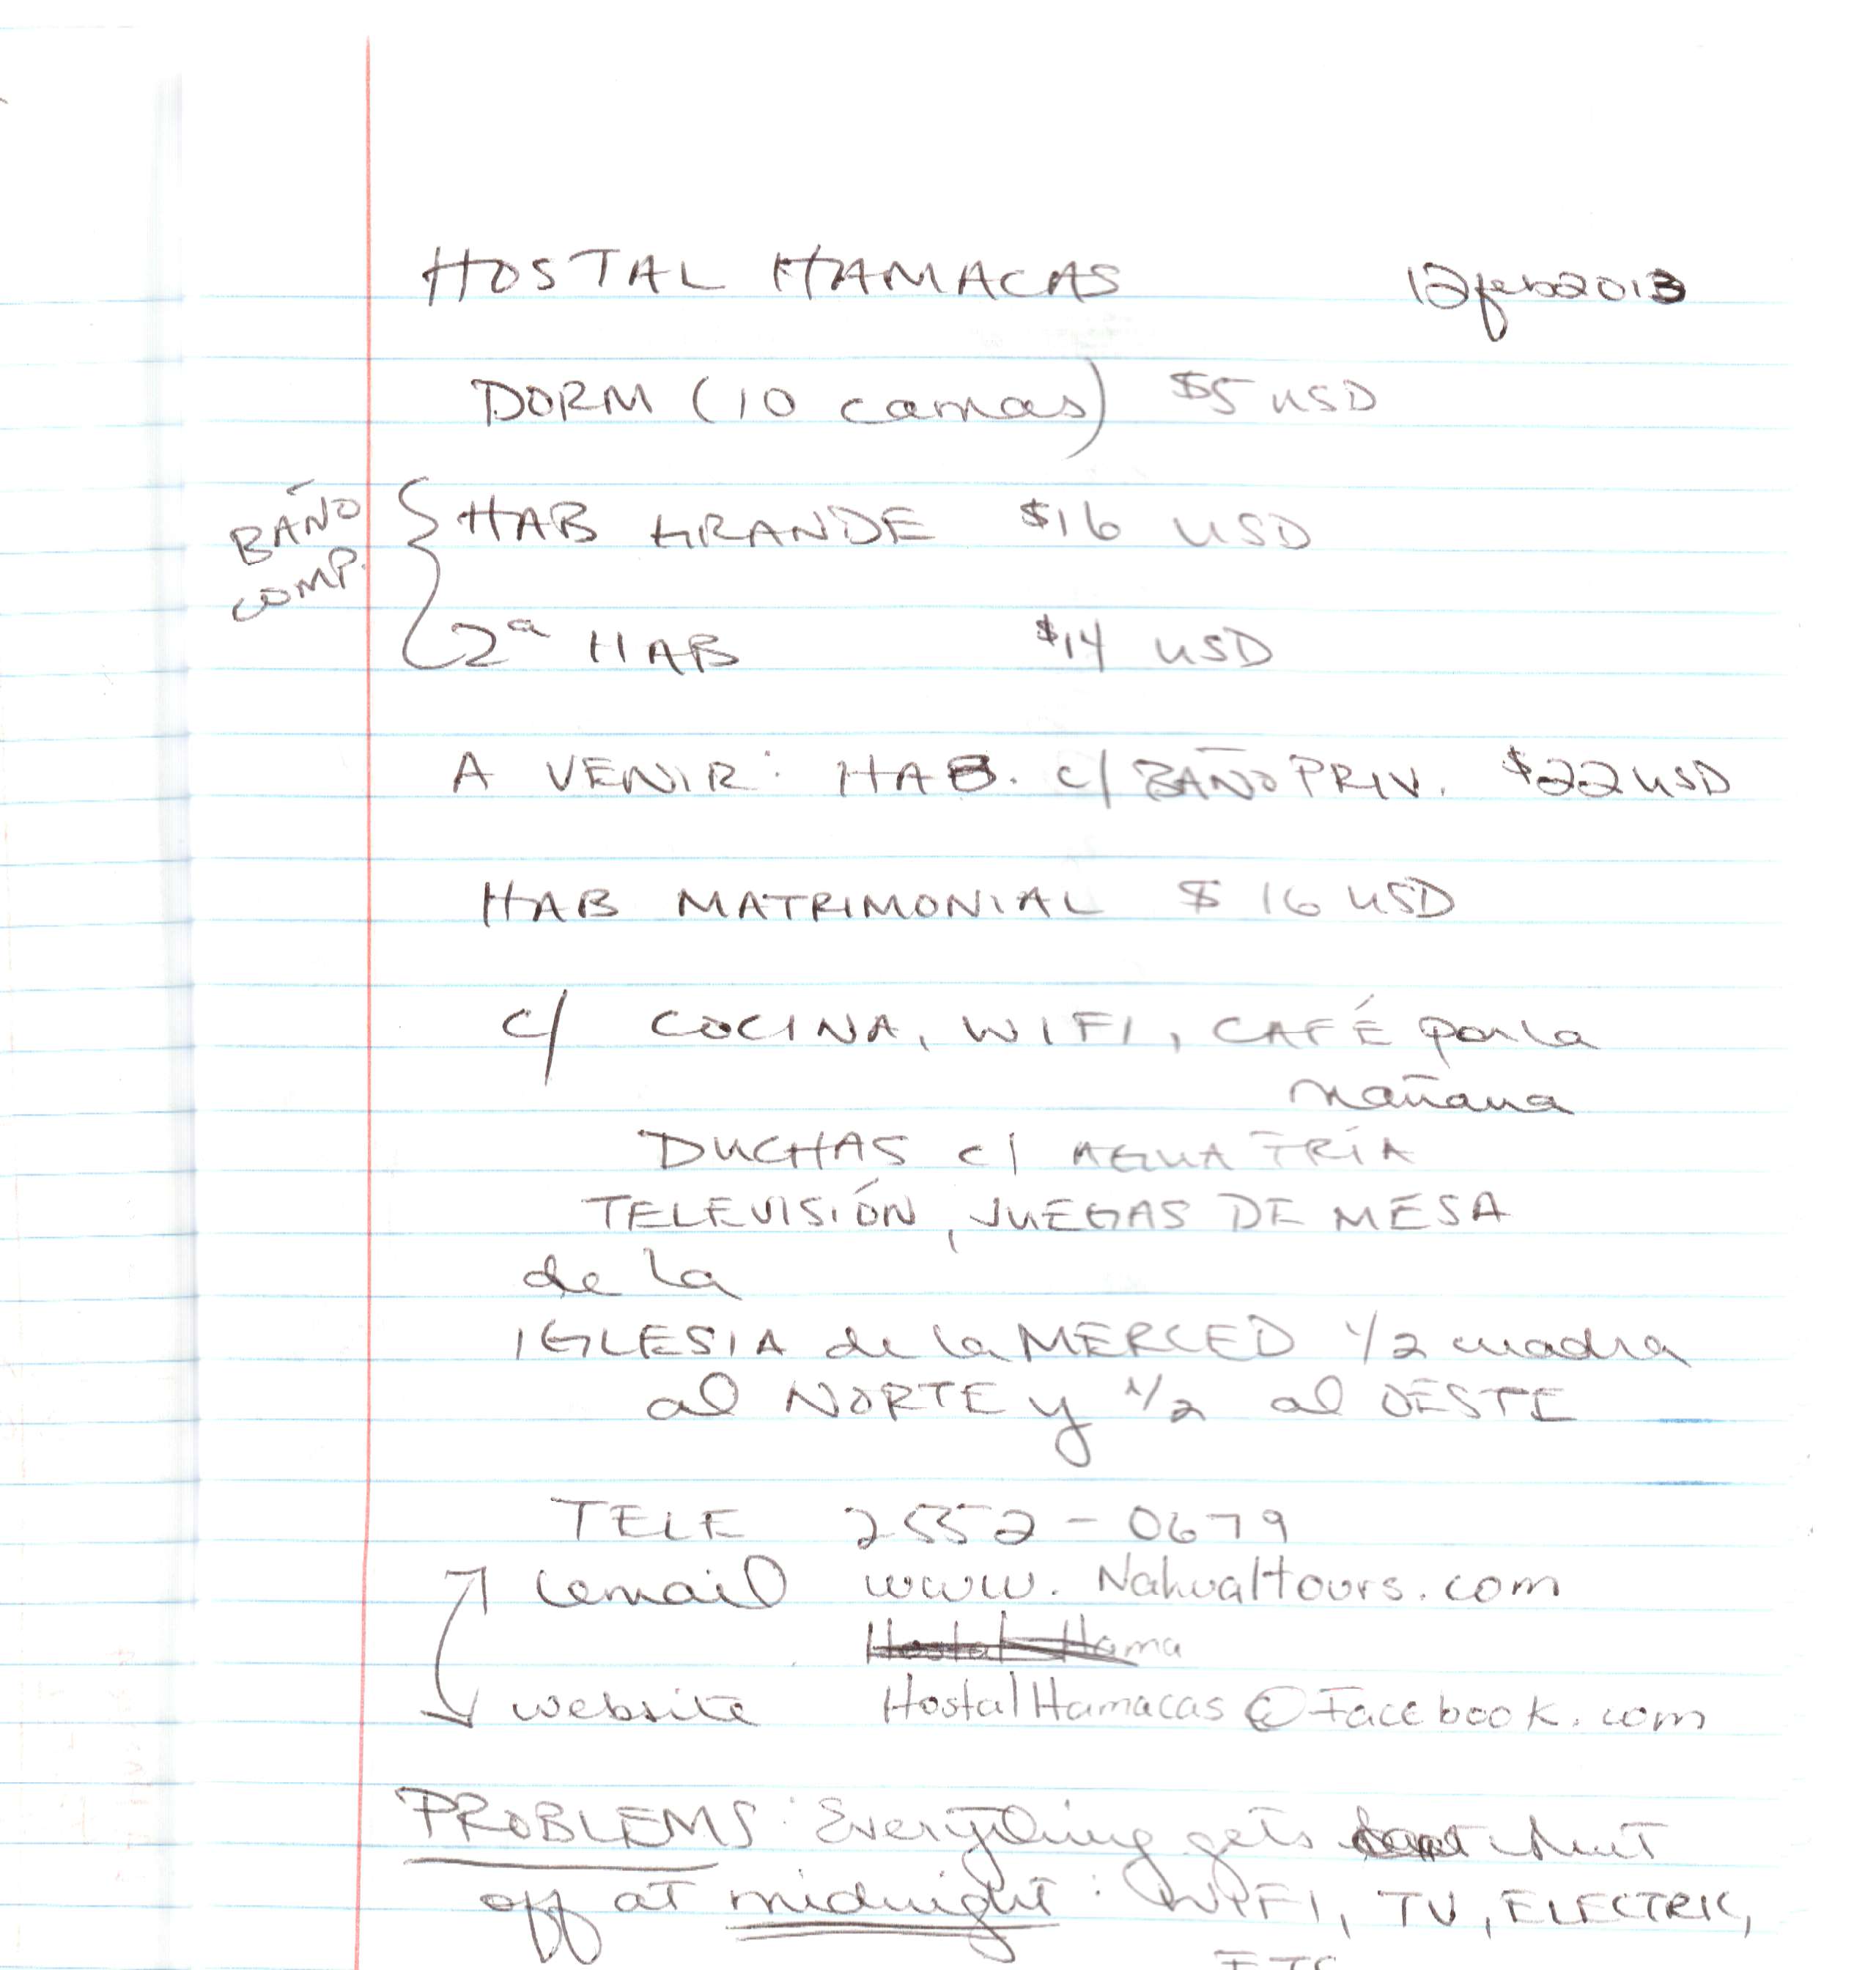 HOSTAL HAMACAS 12feb2013
DORM (10 camas) $5 USD
BAÑO COMP. { HAB GRANDE $16 USD
2ª HAB $14 USD
A VENIR: HAB. c/ BAÑO PRIV. $22 USD
HAB MATRIMONIAL $16 USD
c/ COCINA, WIFI, CAFÉ por la
mañana
DUCHAS c/ AGUA FRÍA
TELEVISIÓN, JUEGAS DE MESA
de la
IGLESIA de la MERCED 1/2 cuadra
al NORTE y 1/2 al OESTE
TELE 2552-0679
email www.Nahualtours.com
Hostal Hama
website HostalHamacas@Facebook.com
PROBLEMS: Everything gets shut
off at midnight: WIFI, TV, ELECTRIC,